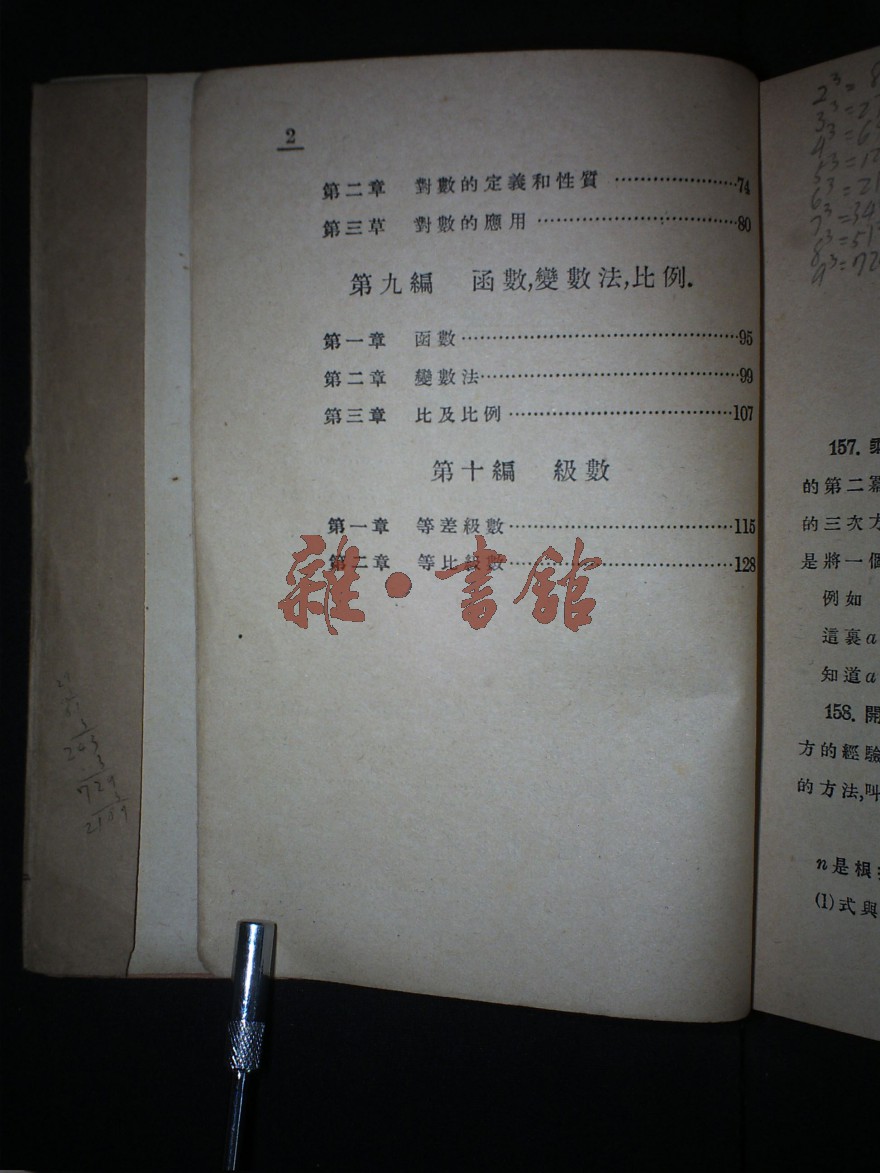 2
第二章 對數的定義和性質 …………………74
第三草 對數的應用 ………………………………80
第九編 函數,變數法,比例.
第一章 函數………………………………………95
第二章 變數法……………………………………99
第三章 比及比例 ………………………………107
第十編 級數
第一章 等差級數………………………………115
第二章 等比級數………………………………128
雜·書館
243
3
729
3
2³=8
3³=2
4³=6
5³=12
6³=21
7³=34
8³=51
9³=72
157.
的第二冪
的三次方
是將一個
例如
這裏a
知道a
158. 開
方的經驗
的方法,叫
n是根
(1)式與